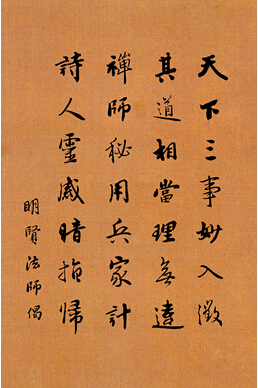 天下三事妙入微
其道相當理無違
禪師秘用兵家計
詩人靈感暗指歸
明賢法師偈